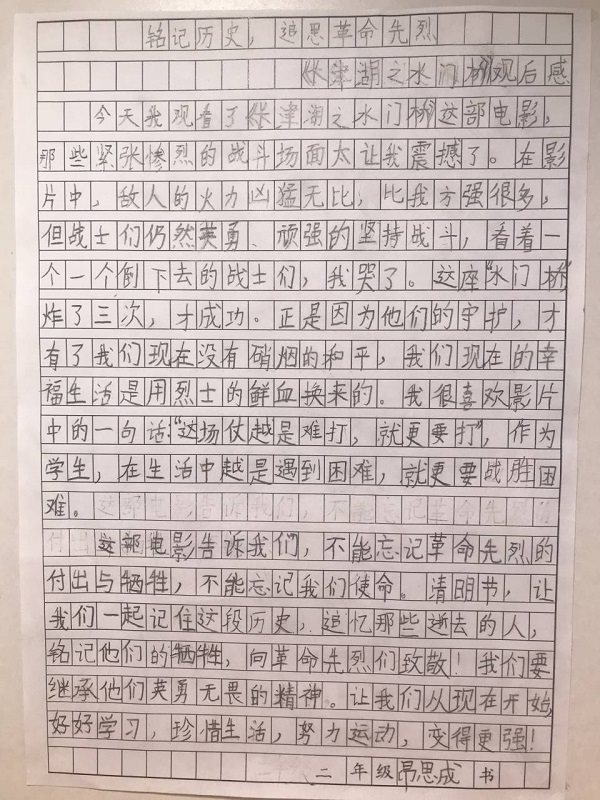 铭记历史，追思革命先烈
《长津湖之水门桥》观后感
今天我观看了《长津湖之水门桥》这部电影，
那些紧张惨烈的战斗场面太让我震撼了。在影
片中，敌人的火力凶猛无比，比我方强很多，
但战士们仍然英勇、顽强的坚持战斗，看着一
个一个倒下去的战士们，我哭了。这座“水门桥”
炸了三次，才成功。正是因为他们的守护，才
有了我们现在没有硝烟的和平，我们现在的幸
福生活是用烈士的鲜血换来的。我很喜欢影片
中的一句话：“这场仗越是难打，就更要打”，作为
学生，在生活中越是遇到困难，就更要战胜困
难。这部电影告诉我们，不能忘记革命先烈的
付出这部电影告诉我们，不能忘记革命先烈的
付出与牺牲，不能忘记我们使命。清明节，让
我们一起记住这段历史，追忆那些逝去的人，
铭记他们的牺牲，向革命先烈们致敬！我们要
继承他们英勇无畏的精神。让我们从现在开始，
好好学习，珍惜生活，努力运动，变得更强！
二年级昂思成 书